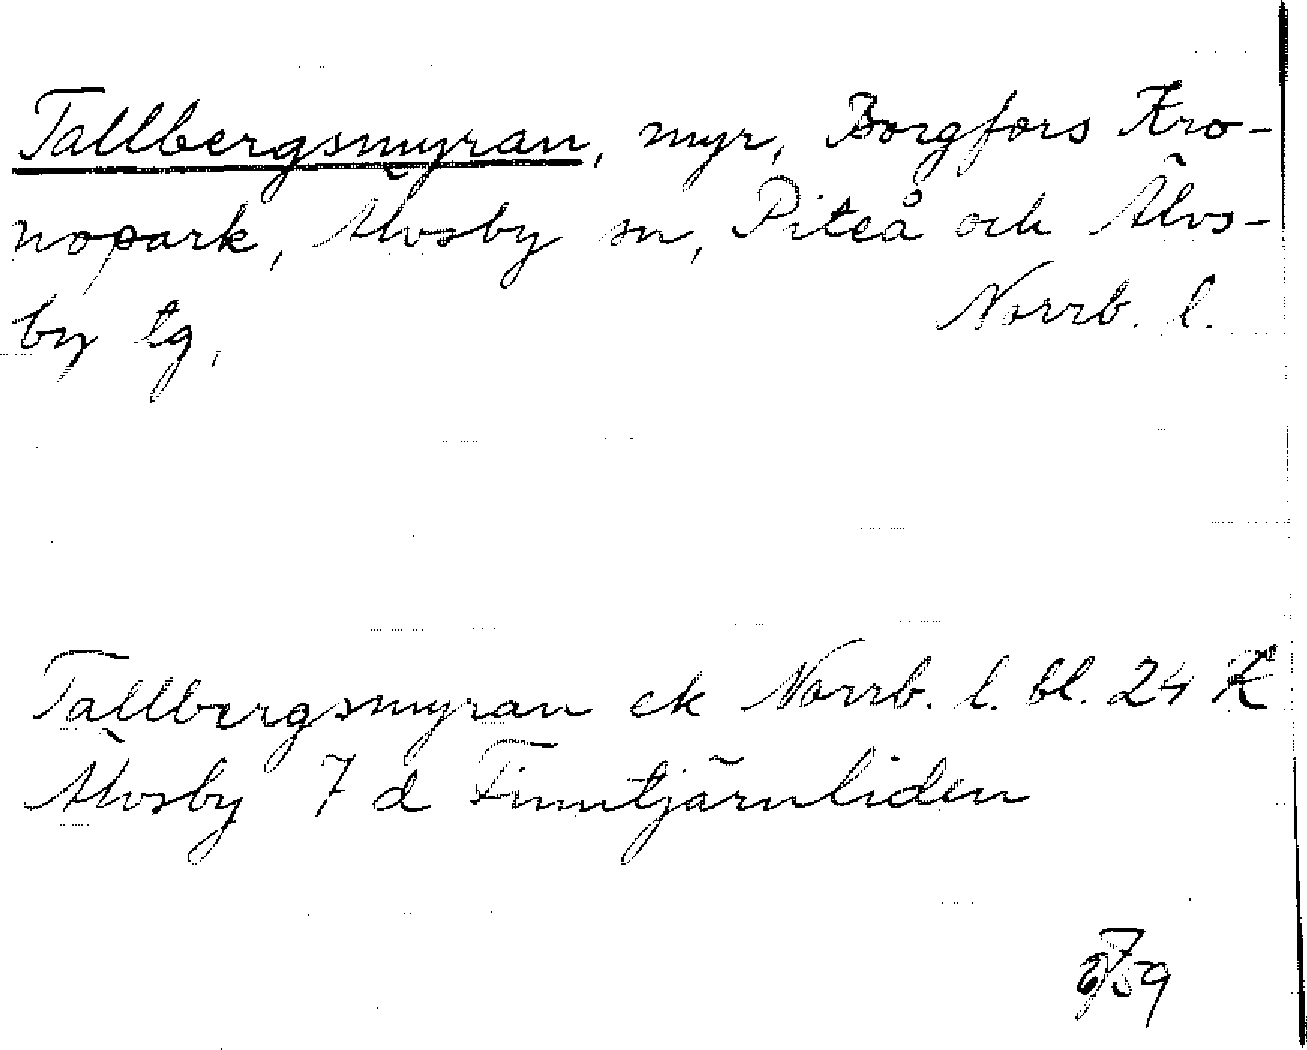 Tallbergsmyran, myr, Borgfors Kro-
nopark, Älvsby sn, Piteå och Älvs-
by tg, Norrb. l.
Tallbergsmyran ek Norrb. l. bl. 24 K
Älvsby 7 d Finntjärnliden